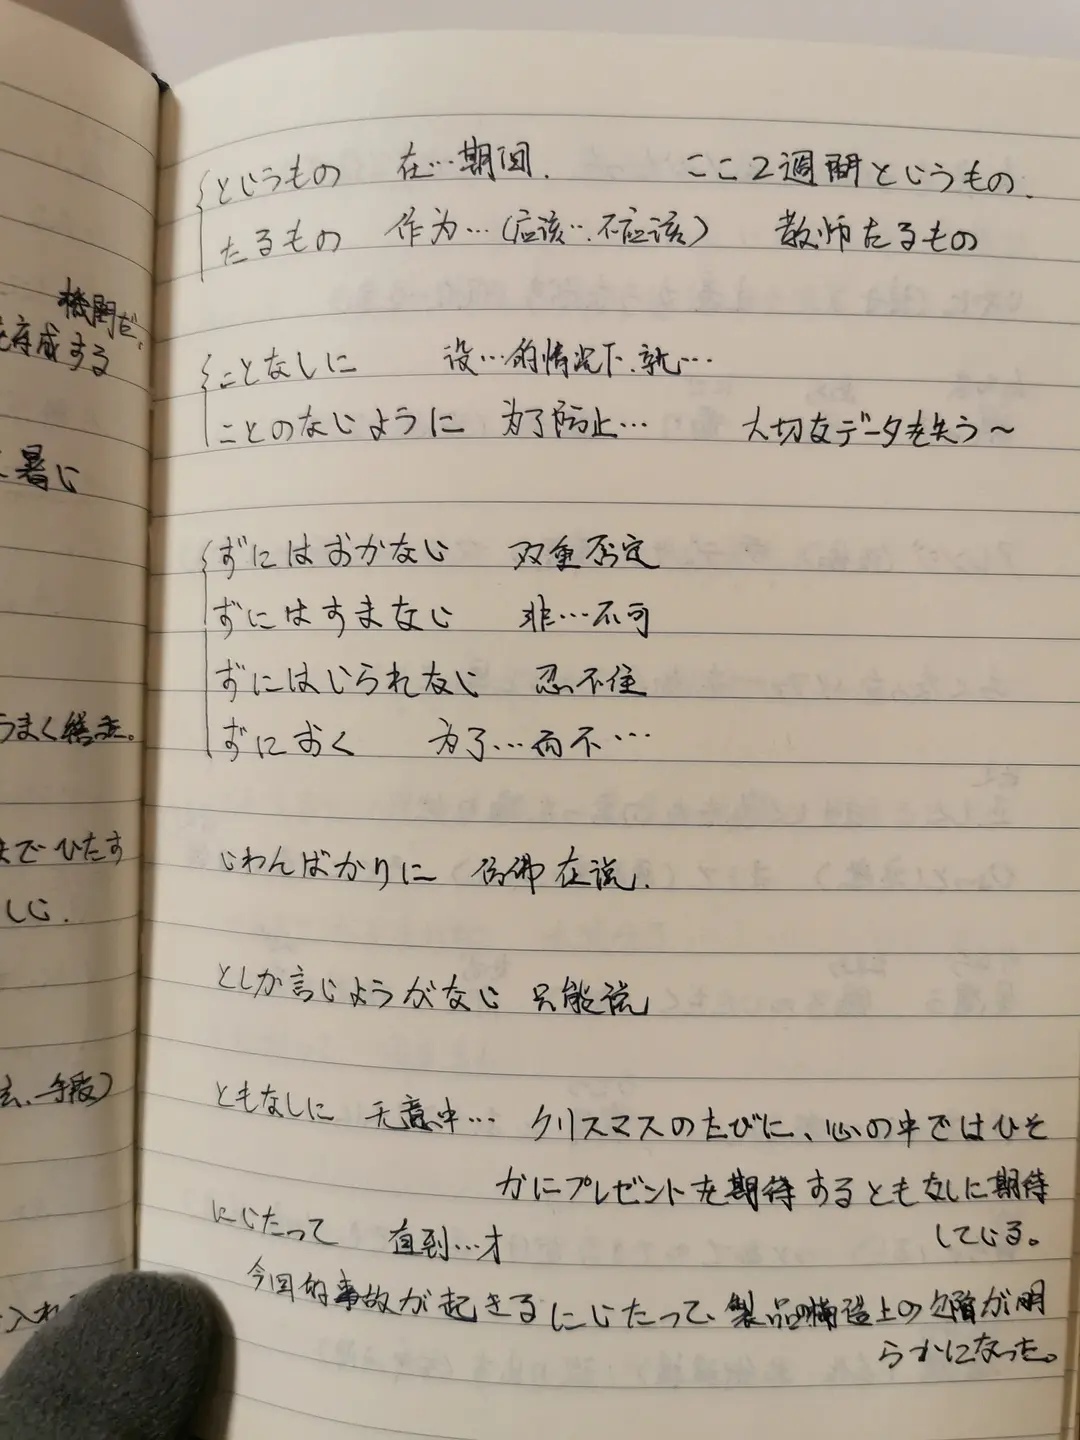 機関だ。
育成する
暑い
うまく
までひたす
しい.
手段)
入れ
というもの 在…期间. ここ2週間というもの.
たるもの 作为…(应该…不应该) 教师たるもの
ことなしに 没…的情况下、就…
ことのないように 为了防止… 大切なデータを失う～
ずにはおかない 双重否定
ずにはすまない 非…不可
ずにはいられない 忍不住
ずにおく 为了…而不…
いわんばかりに 仿佛在说.
としか言いようがない 只能说
ともなしに 无意中… クリスマスのたびに、心の中ではひそ
かにプレゼントを期待するともなしに期待
している。
にいたって 直到…才
今回的事故が起きるにいたって、製品の構造上の欠陥が明
らかになった。